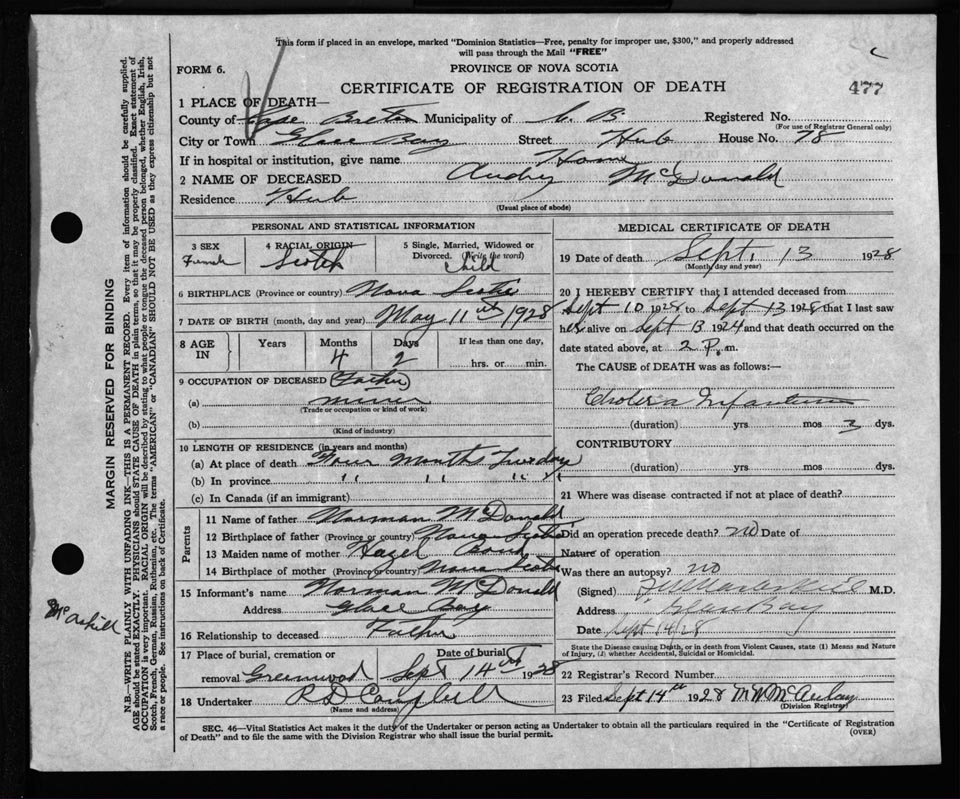 This form if placed in an envelope, marked "Dominion Statistics—Free, penalty for improper use, $300," and properly addressed
will pass through the Mail "FREE"
FORM 6.
PROVINCE OF NOVA SCOTIA
CERTIFICATE OF REGISTRATION OF DEATH
477
1 PLACE OF DEATH—
County of Cape Breton Municipality of C. B. Registered No.
(For use of Registrar General only)
City or Town Glace Bay Street Hub House No. 78
If in hospital or institution, give name Home
2 NAME OF DECEASED Audry McDonald
Residence Hub
(Usual place of abode)
PERSONAL AND STATISTICAL INFORMATION
3 SEX Female
4 RACIAL ORIGIN Scotch
5 Single, Married, Widowed or Divorced. (Write the word) Child
6 BIRTHPLACE (Province or country) Nova Scotia
7 DATE OF BIRTH (month, day and year) May 11th 1928
8 AGE IN Years Months 4 Days 2 If less than one day, hrs. or min.
9 OCCUPATION OF DECEASED (Father)
(a) miner
(Trade or occupation or kind of work)
(b)
(Kind of industry)
10 LENGTH OF RESIDENCE (in years and months)
(a) At place of death Four Months Two day
(b) In province " " " "
(c) In Canada (if an immigrant)
Parents
11 Name of father Norman McDonald
12 Birthplace of father (Province or country) Nova Scotia
13 Maiden name of mother Hazel
14 Birthplace of mother (Province or country) Nova Scotia
15 Informant's name Norman McDonald
Address Glace Bay
16 Relationship to deceased Father
17 Place of burial, cremation or removal Greenwood
Date of burial Sept 14th 1928
18 Undertaker R D Campbell
(Name and address)
MEDICAL CERTIFICATE OF DEATH
19 Date of death Sept. 13 1928
(Month, day and year)
20 I HEREBY CERTIFY that I attended deceased from
Sept 10 1928 to Sept 13 1928 that I last saw
her alive on Sept 13 1924 and that death occurred on the
date stated above, at 2 P. m.
The CAUSE of DEATH was as follows:—
Cholera Infantum
(duration) yrs mos 3 dys.
CONTRIBUTORY
(duration) yrs. mos. dys.
21 Where was disease contracted if not at place of death?
Did an operation precede death? no Date of
Nature of operation
Was there an autopsy? no
(Signed) M.D.
Address Glace Bay
Date Sept 14/28
State the Disease causing Death, or in death from Violent Causes, state (1) Means and Nature
of Injury, (2) whether Accidental, Suicidal or Homicidal.
22 Registrar's Record Number
23 Filed Sept 14th 1928 M McAulay
(Division Registrar)
SEC. 46—Vital Statistics Act makes it the duty of the Undertaker or person acting as Undertaker to obtain all the particulars required in the "Certificate of Registration
of Death" and to file the same with the Division Registrar who shall issue the burial permit.
(OVER)
MARGIN RESERVED FOR BINDING
N.B.—WRITE PLAINLY WITH UNFADING INK—THIS IS A PERMANENT RECORD. Every item of information should be carefully supplied.
AGE should be stated EXACTLY. PHYSICIANS should STATE CAUSE OF DEATH in plain terms, so that it may be properly classified. Exact statement of
OCCUPATION is very important. RACIAL ORIGIN will be described by stating to what people or tongue the deceased person belonged, whether English, Irish,
Scotch, French, German, Russian, Ruthenian, etc. The terms "AMERICAN" or "CANADIAN" SHOULD NOT BE USED as they express citizenship but not
a race or people. See instructions on back of Certificate.
McAskill